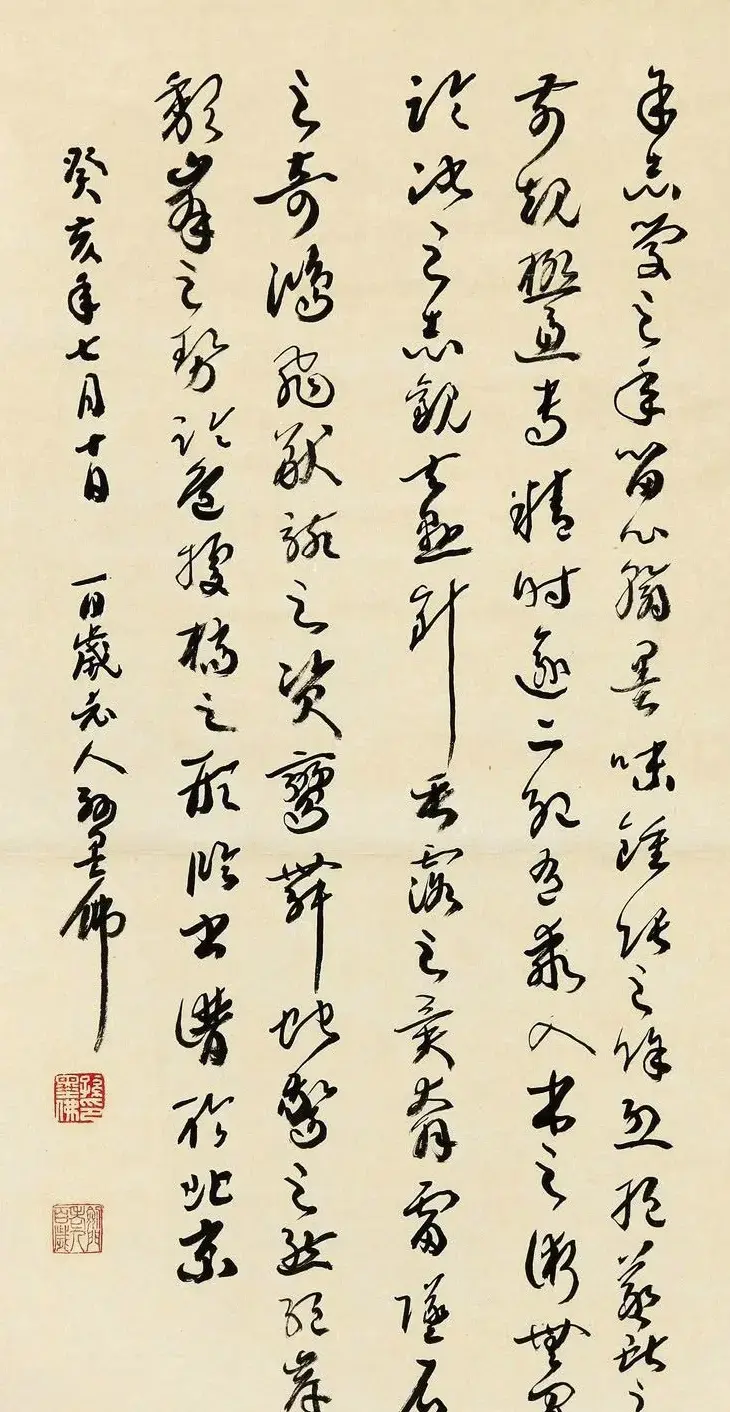 余志學之年留心翰墨味鍾張之餘烈挹羲獻之
前規極慮專精時逾二紀有乖入木之術無間
臨池之志觀夫懸針垂露之異奔雷墜石
之奇鴻飛獸駭之資鸞舞蛇驚之態絕岸
頹峯之勢臨危據槁之形臨書譜於北京
癸亥年七月十日 百歲老人孫墨佛
孫墨佛印